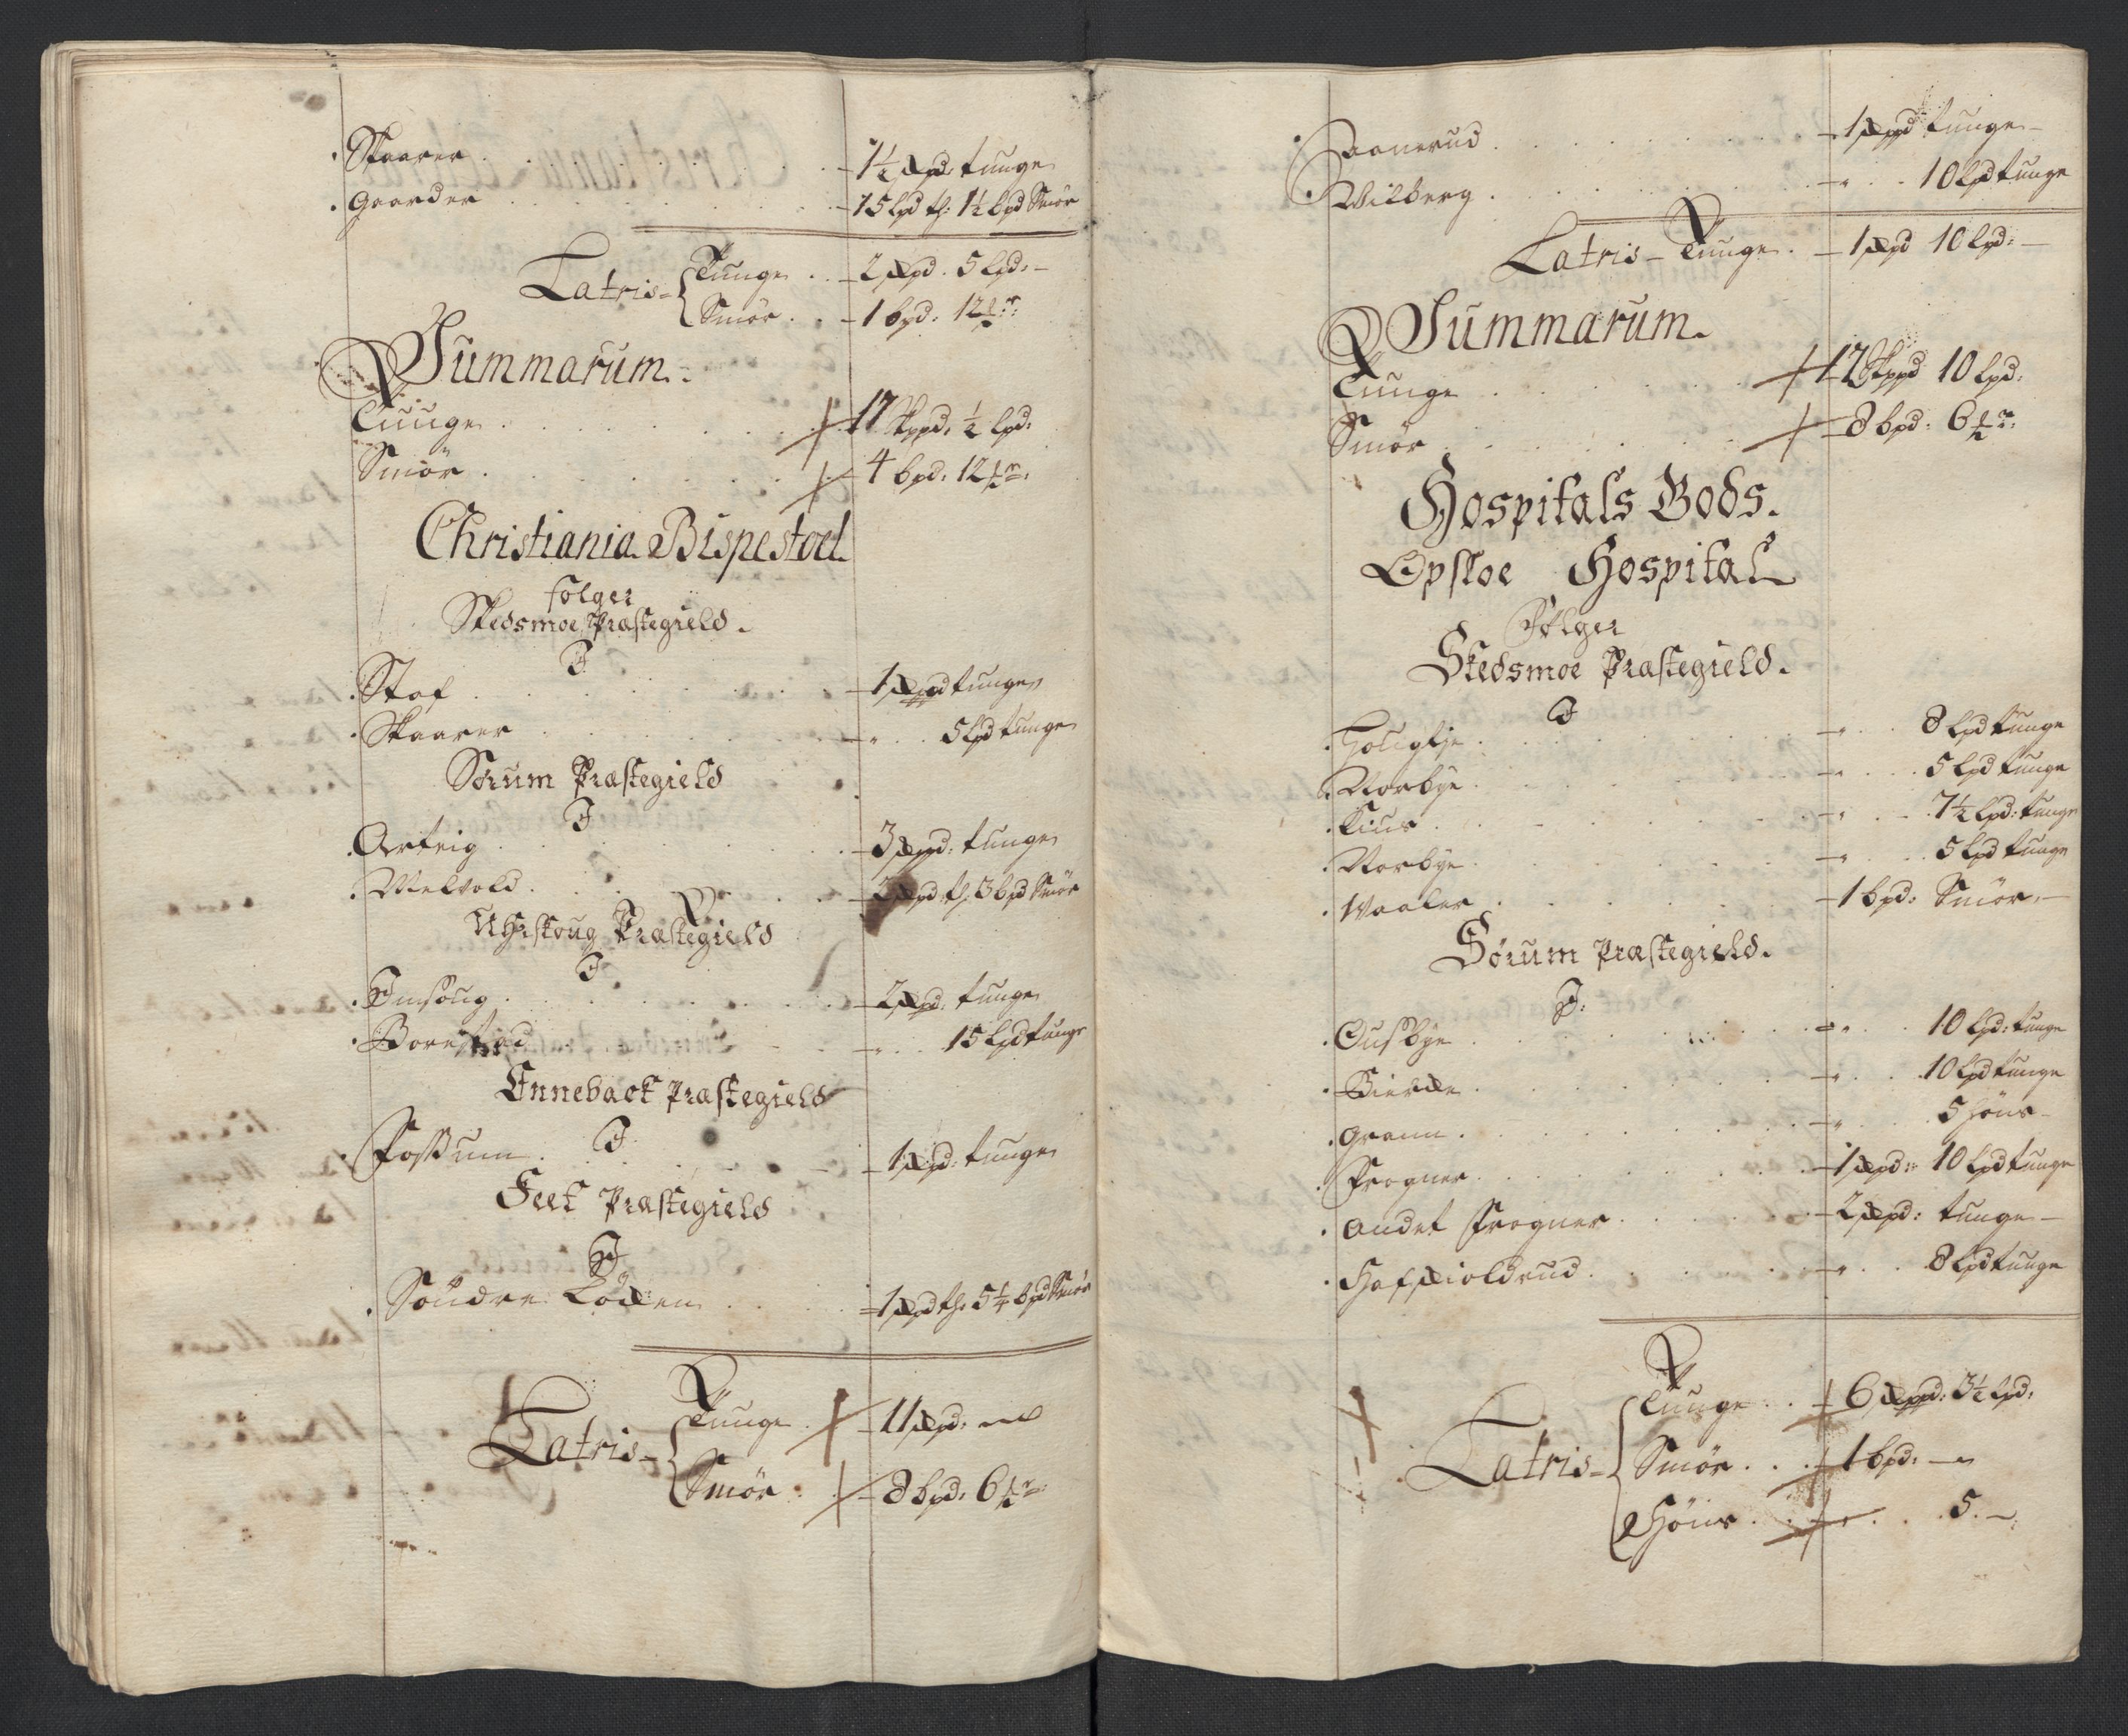 Skaarer . . . 1½ Skpd: tunge
Gaarder . . . 15 lpd th: 1½ bpd Smör
Latris - Tunge . . 2 Skpd . 5 lpd: -
Smör . . 1 bpd: 12
Summarum.
Tunge . . . 17 Skppd: ½ lpd:
Smör . . . 4 bpd: 12
Christiania Bispestoel
følger
Skedsmoe Præstegield.
J
Staf . . . 1 Skppd tunge
Skaarer . . . 5 lpd tunge
Sørum Præstegield
J
Arteig . . . 3 Skpd: tunge
Melvold . . . 2 Skpd th: 3 bpd Smör
Uhrskoug Præstegield
J
. . . 2 Skpd: tunge
. . . 15 lpd tunge
Enneback Præstegield
J
Fossum . . . 1 Skpd: tunge
Feet Præstegield
J
Söndre Löcken . . . 1 Skpd th: 5¼ bpd Smör
Latris - Tunge . 11 Skpd:
Smör . 8 bpd: 6
Aanerud . . . 1 Skppd tunge -
Wilberg . . . 10 lpd tunge
Latris - Tunge . 1 Skpd 10 lpd: -
Summarum.
Tunge . . . 12 Skppd 10 lpd:
Smör . . . 8 bpd: 6
Hospitals Gods.
Opsloe Hospital
Følger
Skedsmoe Præstegield.
J
. . . 8 lpd tunge
Norbye . . . 5 lpd tunge
. . . 7½ lpd: tunge
Norbye . . . 5 lpd tunge
Waaler . . . 1 bpd: Smör. -
Sørum Præstegield.
J:
Ousbye . . . 10 lpd: tunge
Biercke . . . 10 lpd tunge
Gran . . . 5 Höns -
Frogner . . . 1 Skpd: 10 lpd tunge
Andet Frogner . . . 2 Skpd: tunge -
. . . 8 lpd tunge
Latris - Tunge . . 6 Skppd: 3½ lpd:
Smör . . . 1 bpd: -
Höns . . . 5. -